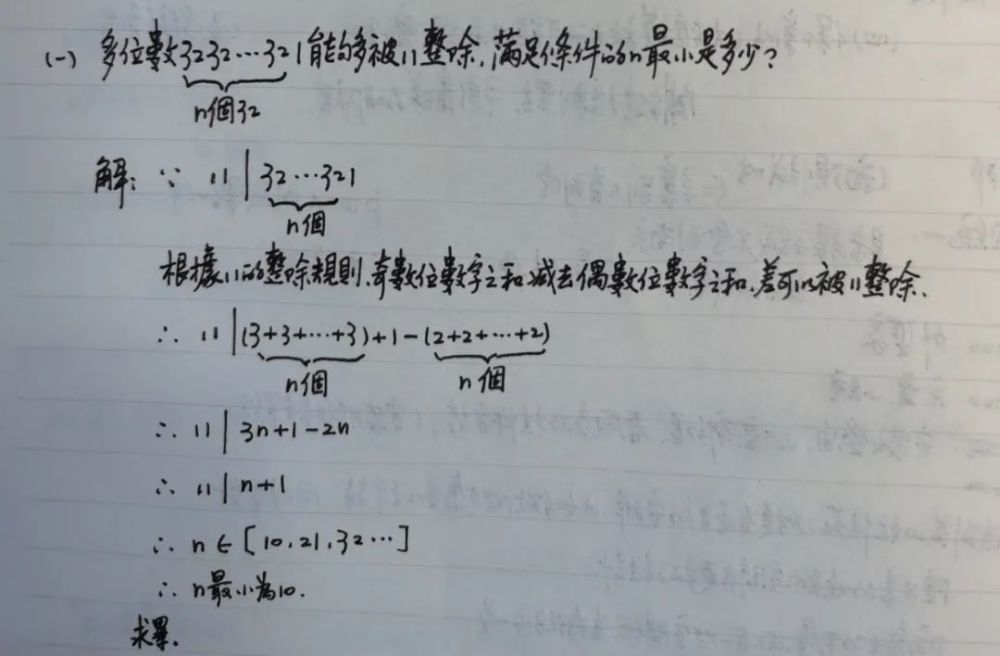 (一) 多位數3232…321能够被11整除,满足條件的n最小是多少?
n個32
解: ∵ 11 | 32…321
n個
根據11的整除規則,奇數位數字之和减去偶數位數字之和,差可以被11整除.
∴ 11 | (3+3+…+3)+1-(2+2+…+2)
n個 n個
∴ 11 | 3n+1-2n
∴ 11 | n+1
∴ n ∈ [10,21,32…]
∴ n最小為10.
求畢.